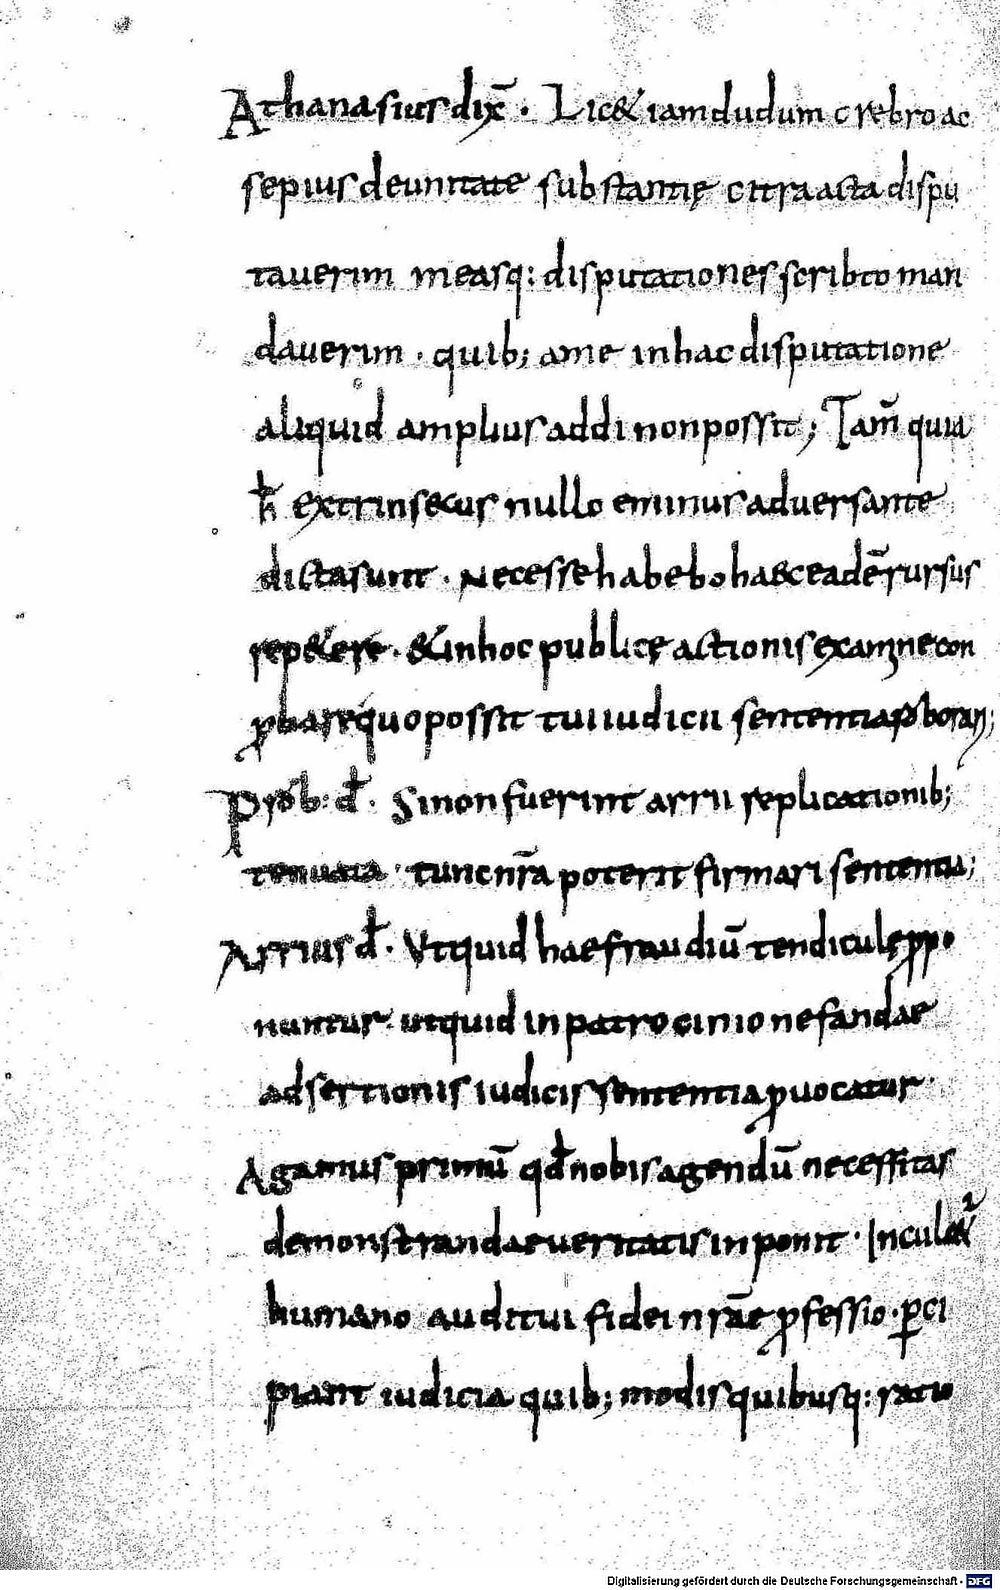 Athanasius dix̄ · Lic& iamdudum crebro ac
sepius de unitate substantię citra acta dispu
tauerim measq: disputationes scribto man
dauerim · quib; a me in hac disputatione
aliquid amplius addi non possit; Tam̄ quia
h̄ extrinsecus nullo eminus aduersante
dicta sunt · Necesse habebo haec eadē rursus
rep&ere · & in hoc publicę actionis examine con
ꝓbare quo possit tui iudicii sententia
Prob: d̄ · Si non fuerint arrii replicationib;
tenuata · tunc nr̄a poterit firmari sententia;
Arrius d̄ · Ut quid hae fraudiū tendiculę ꝓpo
nuntur · ut quid in patrocinio nefandae
adsertionis iudicis sententia ꝓuocatur ·
Agamus primū qd̄ nobis agendū necessitas
demonstrandae ueritatis inponit ·
humano auditui fidei nr̄ae ꝓfessio · ꝑci
piant iudicia quib; modis quibusq: ratio
Digitalisierung gefördert durch die Deutsche Forschungsgemeinschaft - DFG